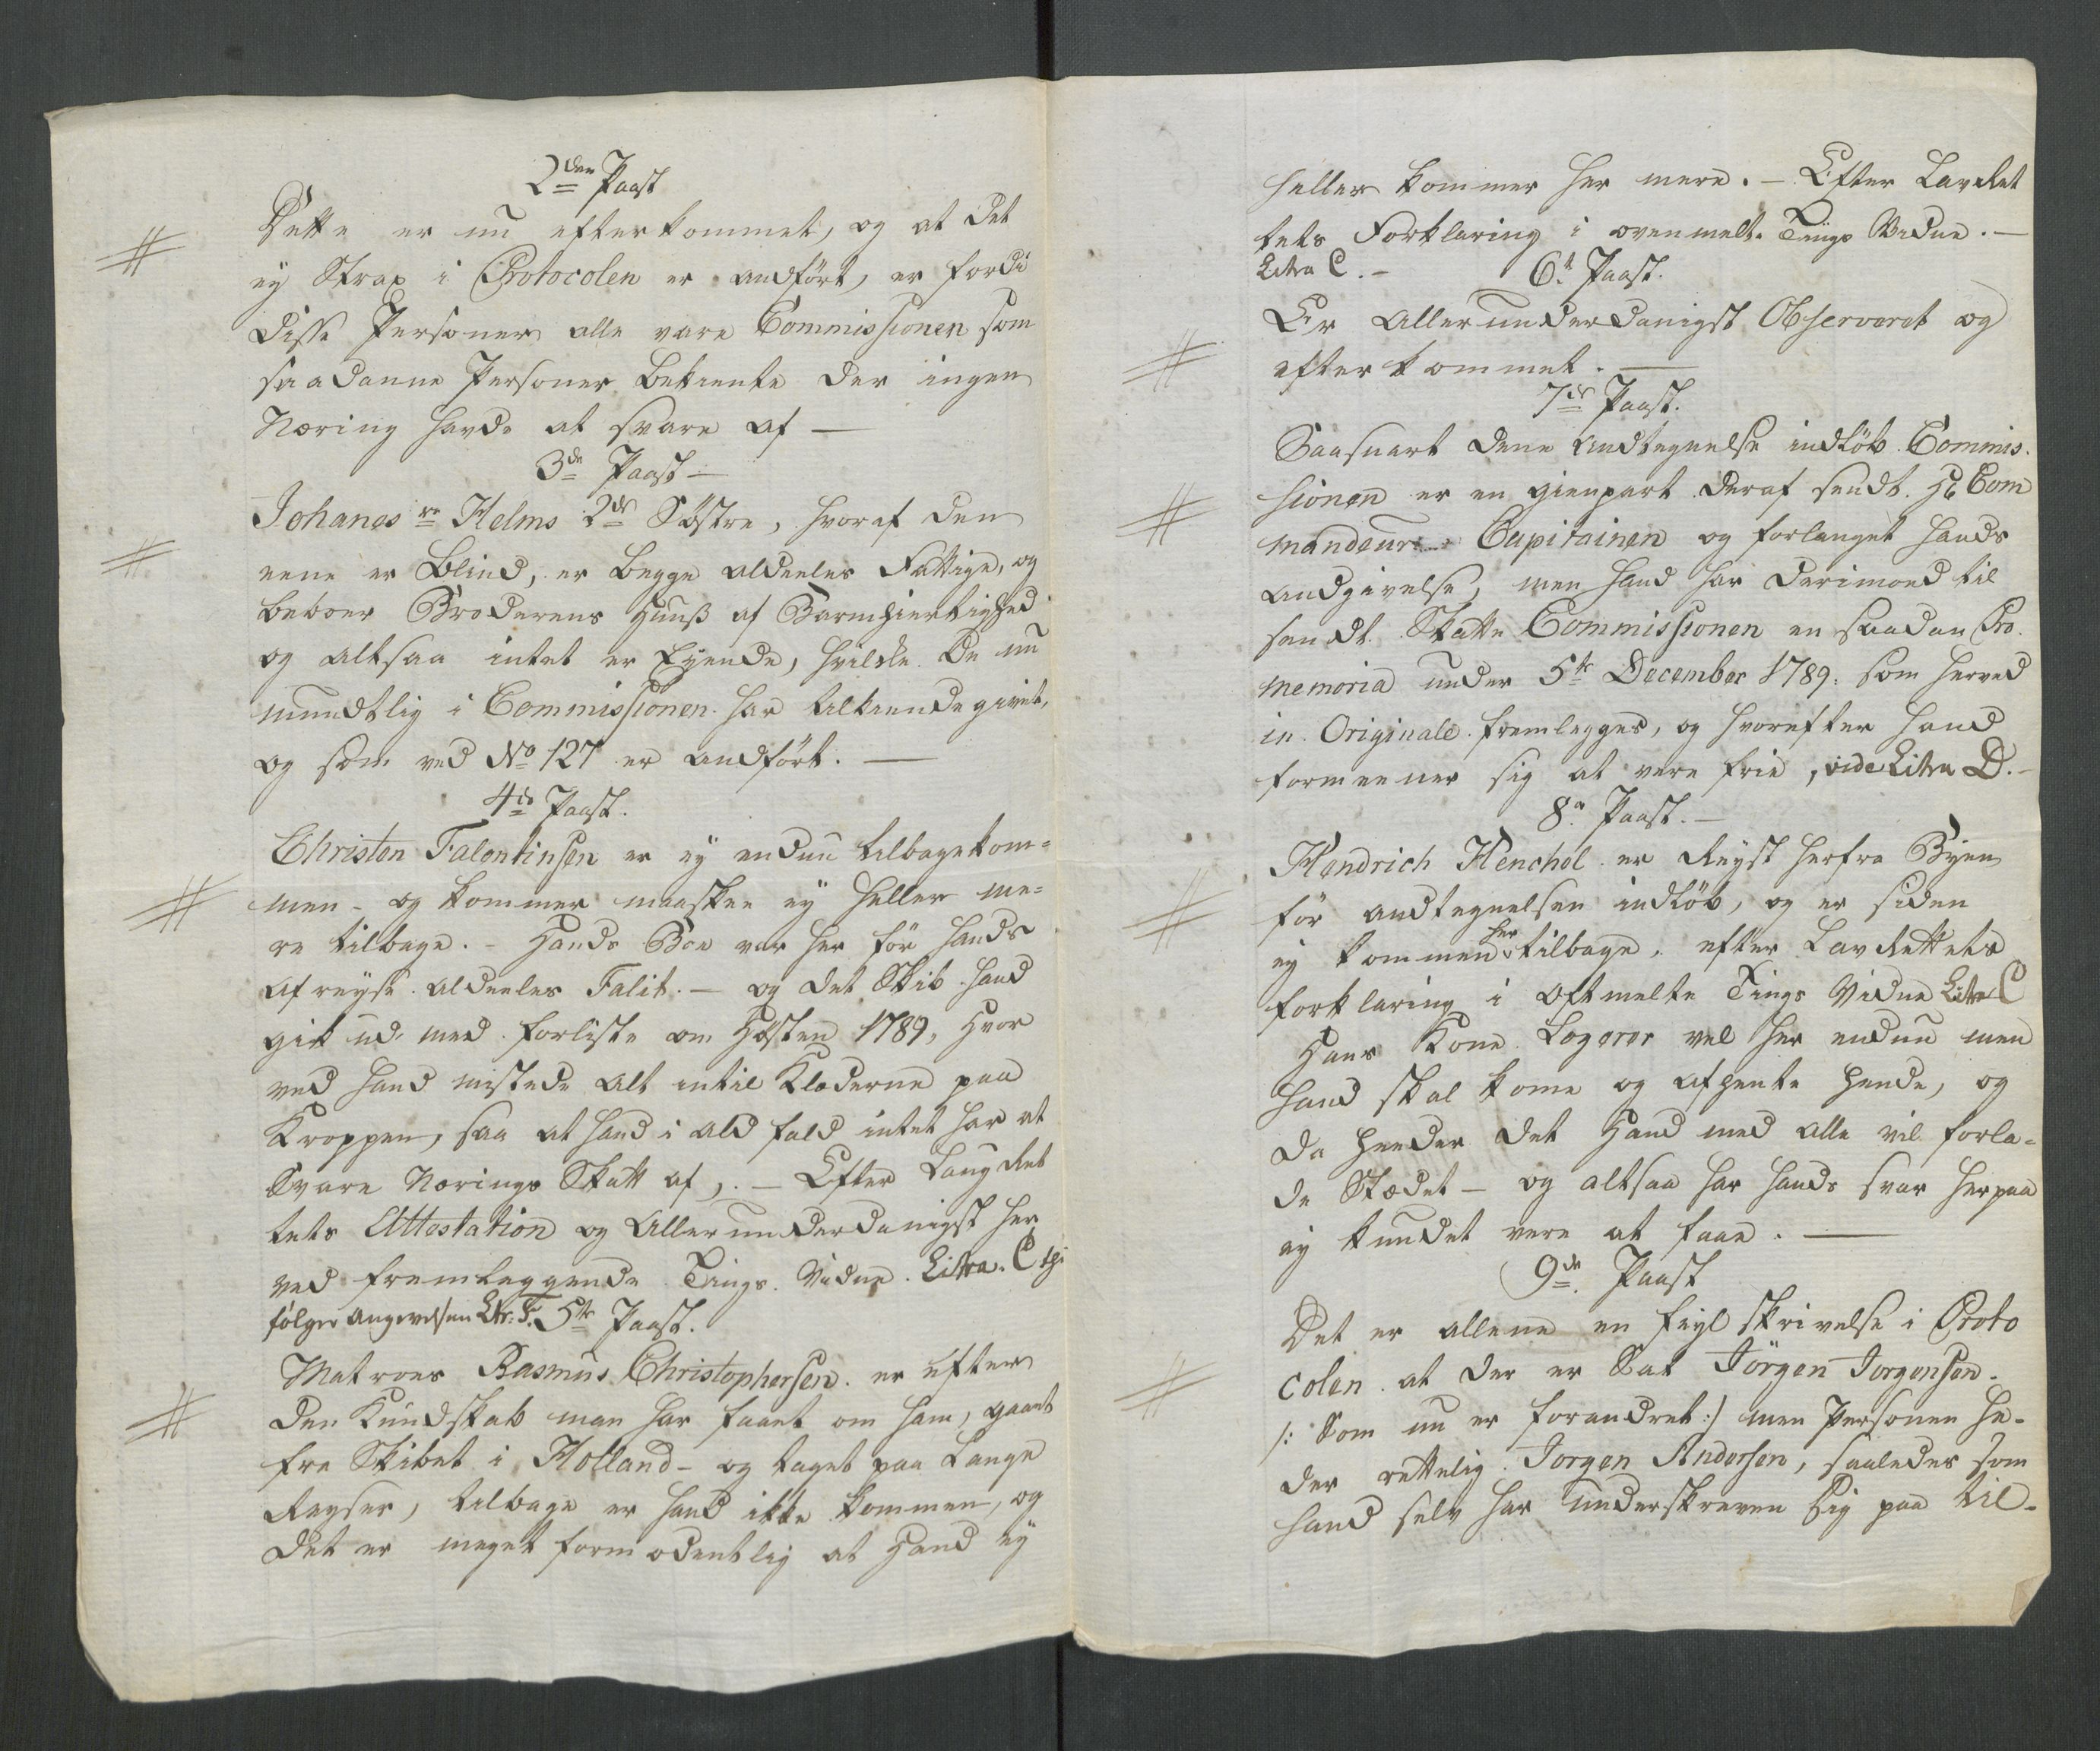 2den Paast
Dette er nu efterkommet, og at det
ey Strax i Protocolen er andført, er fordi
disse Personer alle vare Commissionen som
saadanne Personer bekiente der ingen
Næring havde at svare af —
3de Paast —
Johanes Helms 2de Søstre, hvoraf den
eene er Blind, er begge aldeeles Fattige, og
beboer Broderens Huuß af Barmhiertighed
og altsaa intet er Eyende, hvilcke De nu
mundtlig i Commissionen har tilkiendegivet,
og som ved No 127 er andført. —
4de Paast.
Christen Falentinsen er ey endnu tilbagekom=
men - og kommer maaskee ey heller me=
re tilbage. - Hands Boe var her før hands
afreyse aldeeles Falit. — og det Skib hand
gik ud med forliste om Høsten 1789, hvor
ved hand mistede alt intil Klæderne paa
Kroppen, saa at hand i ald fald intet har at
Svare Nærings Skatt af,. — Efter Laug Ret
tets Attestation og Allerunderdanigst her
ved fremlæggende Tings Vidne. Litra. C
følger Angivelsen Ltr. F. 5te Paast.
Matroes Rasmus Christophersen er efter
den Kundskab man har faaet om ham, gaaet
fra Skibet i Holland - og taget paa Lange
Reyser, tilbage er hand ikke kommen, og
det er meget formodentlig at Hand ey
heller kommer her mere. — Efter LavRet
tets Forklaring i ovenmelt. Tings Vidne. —
Litra C. — 6te Paast.
Er Allerunderdanigst Observeret og
efterkommet. —
7de Paast.
Saasnart denne Andtegnelse indløb Commis.
sionen er en gienpart deraf sendt Hr Com
mandeur Capitainen og forlanget hands
Andgivelse, men hand har derimod til
sendt Skatte Commissionen en saadan Pro.
memoria under 5te December 1789. som herved
in Originale fremlegges, og hvorefter hand
formeener sig at være frie, vide Litra D. —
8de Paast. —
Hendrich Henchel er Reyst herfra Byen
før andtegnelsen indløb, og er siden
her
ey kommen tilbage. efter LavRettets
forklaring i oftmelte Tings Vidne Litra C
Hans Kone Logerer vel her endnu men
hand skal kome og afhente hende, og
da heeder det Hand med alle vil forla=
de Stædet — og altsaa har hands svar herpaa
ey kundet være at faae. —
9de Paast
Det er allene en feyl skrivelse i Proto
colen at der er Sat Jörgen Jorgensen.
/: Som nu er forandret :/ men Personen he=
der rettelig Jorgen Andersen, saaledes som
hand selv har underskreven sig paa til=